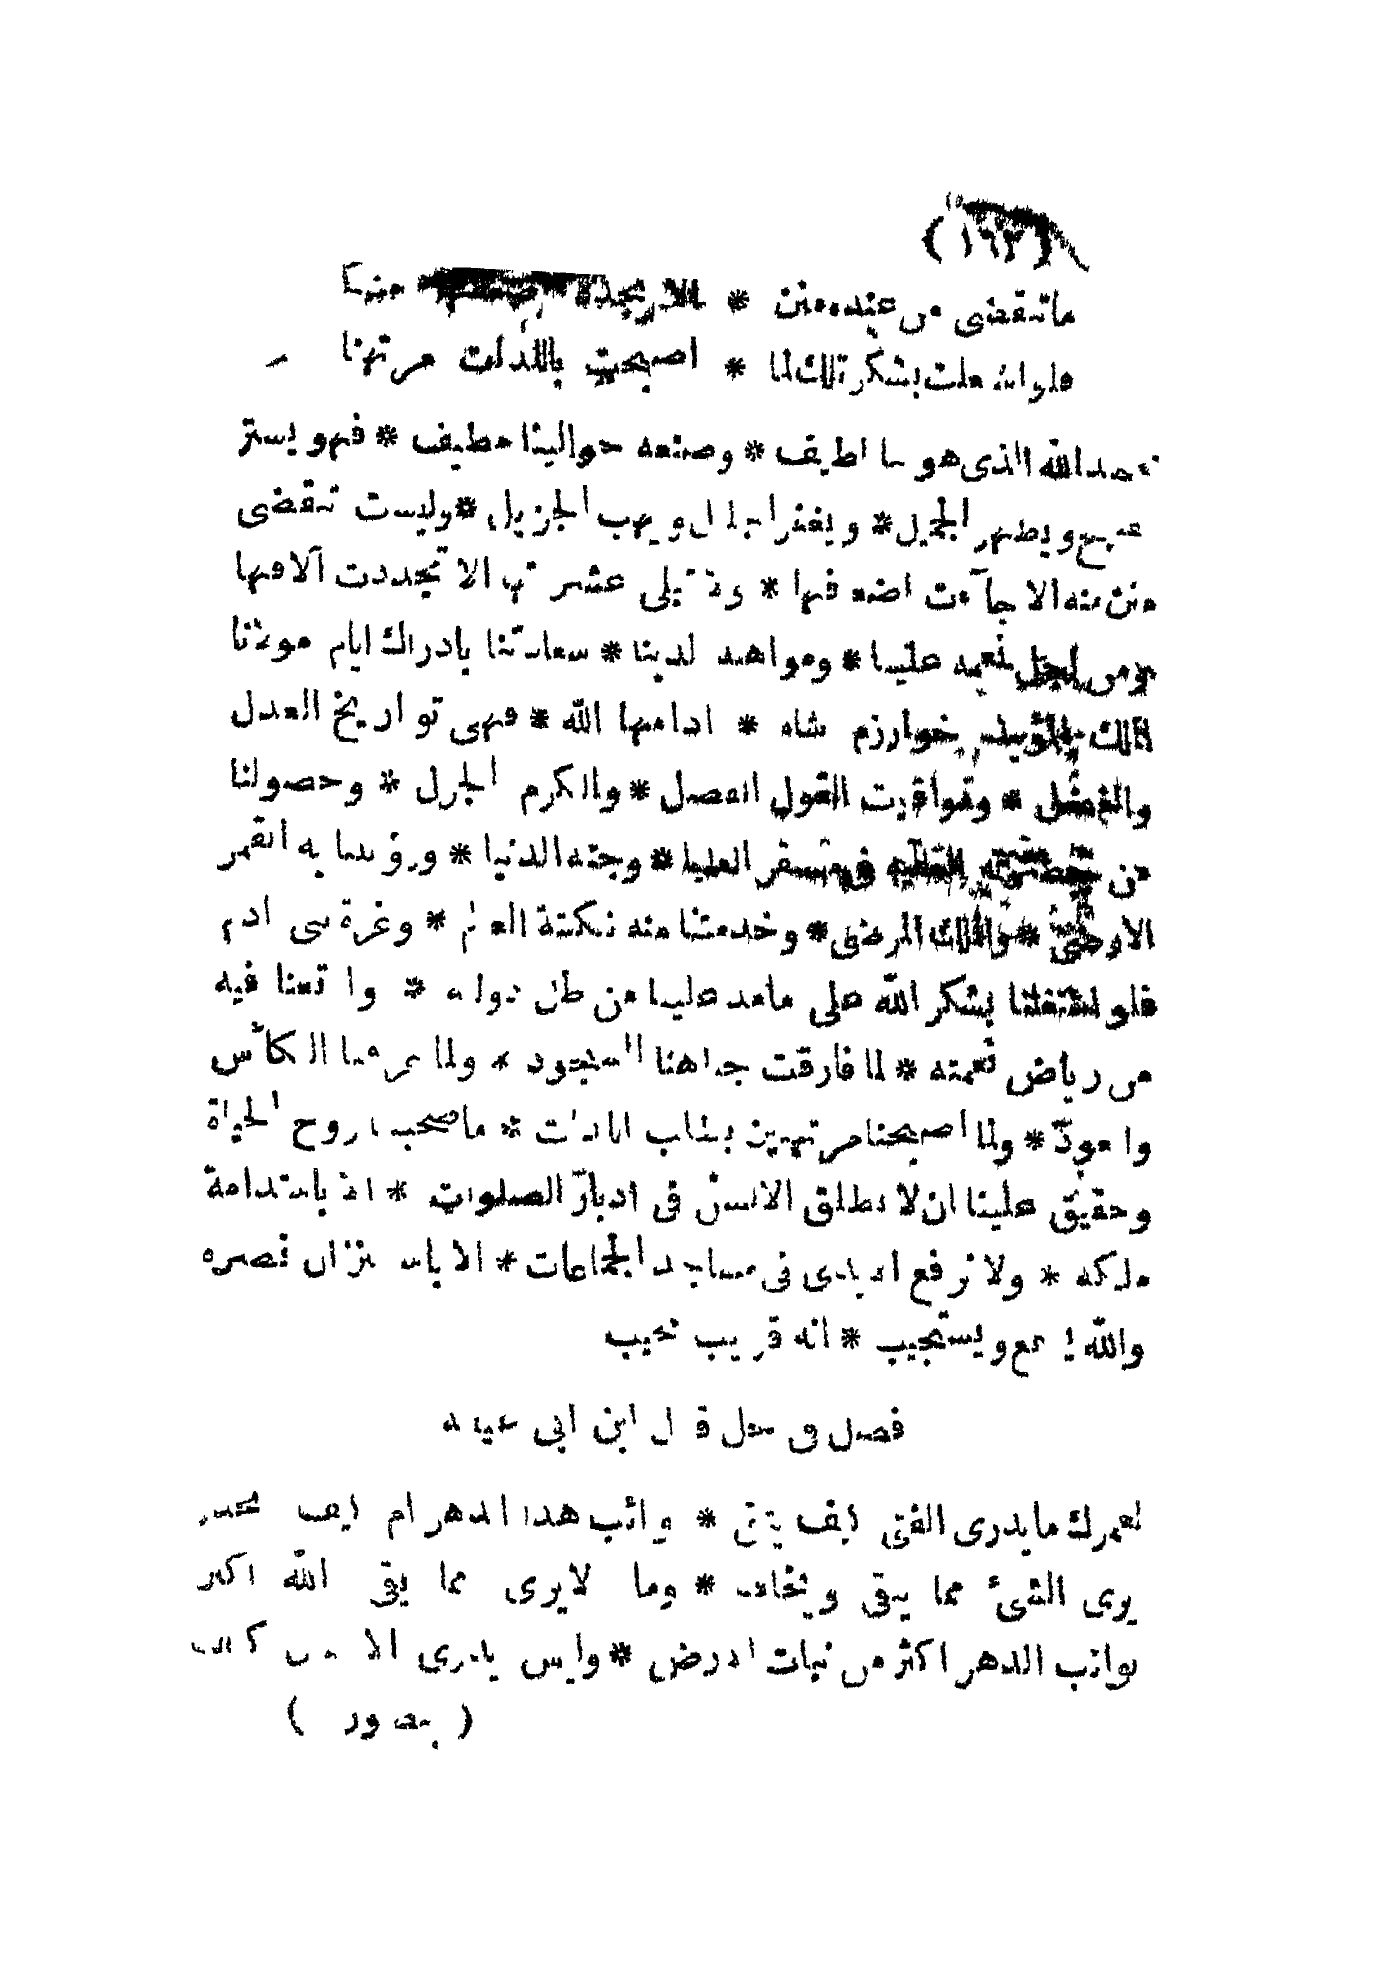 (١٦٢)
ما تنقضى من عنده منن * الا وتجددت منها
فلو اشتغلت بشكر تلك لما * اصبحت باللذات مرتهنا
نحمد الله الذى هو بنا لطيف * وصنعه حوالينا مطيف * فهو يستر
القبيح ويظهر الجميل * ويغفر ويهب الجزيل * وليست تنقضى
منن منه الا جاءت اضعافها * عشر منها الا تجددت آلافها
ومن اجل نعمه علينا * ومواهبه لدينا * سعادتنا بادراك ايام مولانا
الملك المؤيد خوارزم شاه * ادامها الله * فهى تواريخ العدل
والفضل * ومواقيت القول الفصل * والكرم الجزل * وحصولنا
من العالية فى مستقر العليا * وجنة الدنيا * ورؤيتنا به القمر
الارضى * والملك المرضى * وخدمتنا منه نكتة العالم * وغرة بنى آدم
فلو اشتغلنا بشكر الله على ما مد علينا من ظل دولته * وارتعنا فيه
من رياض نعمته * لما فارقت جباهنا السجود * ولما عرفنا الكأس
والعود * ولما اصبحنا مرتهنين باللذات * ما صحبنا روح الحياة
وحقيق علينا ان لا نطلق الالسن فى ادبار الصلوات * الا باستدامة
ملكه * ولا نرفع الايدى فى مساجد الجماعات * الا باستنزال نصره
والله يسمع ويستجيب * انه قريب مجيب
فصل قال ابن ابى
لعمرك ما يدرى الفتى كيف يتقى * نوائب هذا الدهر ام كيف يحذر
يرى الشئ مما يتقى ويخافه * وما لا يرى مما يقى الله اكبر
نوائب الدهر اكثر من نبات الارض * وليس يدرى